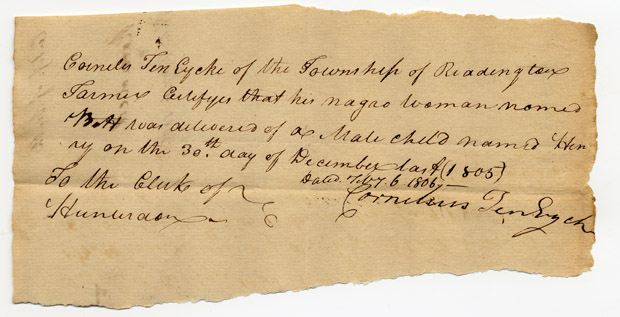 Cornelis TenEycke of the Township of Readington
Farmer Certifyes that his nagro woman named
Bett was delivered of a Male child named Hen
ry on the 30th. day of December last (1805)
Dated Feby 6 1806
To the Clerk of
Cornelius TenEyck
Hunterdon